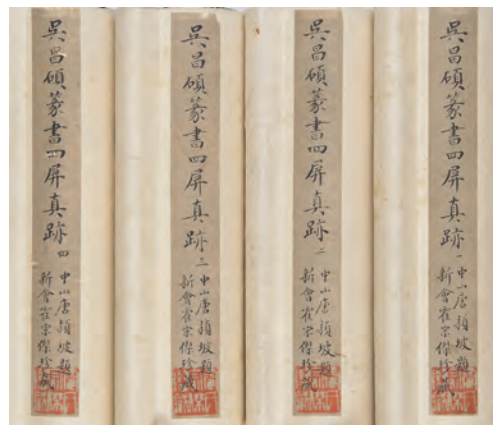 吳昌碩篆書四屏真跡 一
中山唐穎坡題
新會霍宗傑珍藏
吳昌碩篆書四屏真跡 二
中山唐穎坡題
新會霍宗傑珍藏
吳昌碩篆書四屏真跡 三
中山唐穎坡題
新會霍宗傑珍藏
吳昌碩篆書四屏真跡 四
中山唐穎坡題
新會霍宗傑珍藏